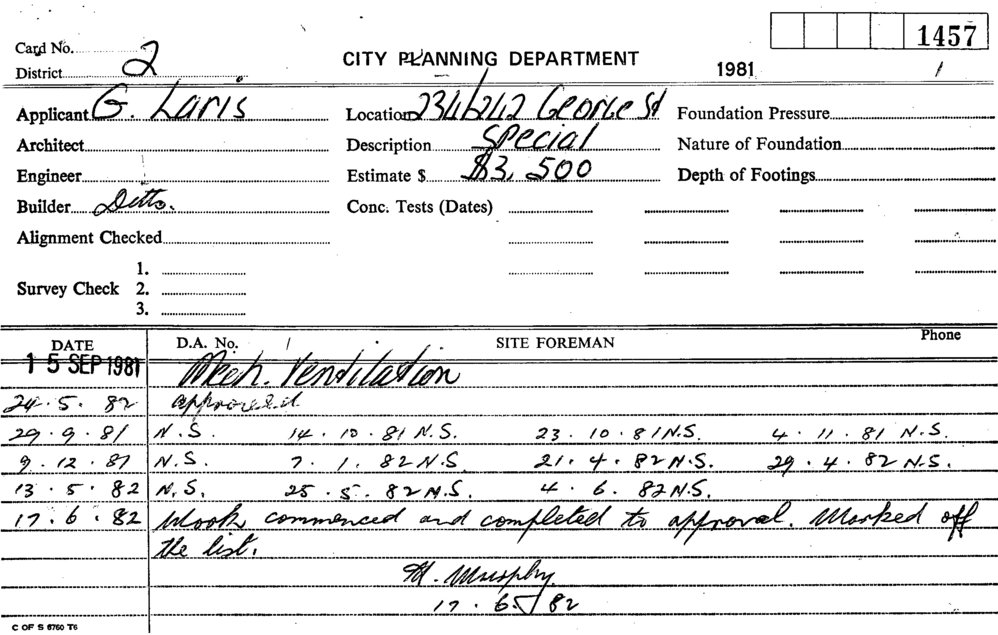 1457
Card No.
District 2
CITY PLANNING DEPARTMENT
1981
Applicant G. Laris
Location 234/242 George St
Foundation Pressure
Architect
Description Special
Nature of Foundation
Engineer
Estimate $ $3,500
Depth of Footings
Builder Ditto.
Conc. Tests (Dates)
Alignment Checked
Survey Check
1.
2.
3.
DATE D.A. No. SITE FOREMAN Phone
15 SEP 1981 Mech. Ventilation
24.5.82 approved
29.9.81 N.S. 14.10.81 N.S. 23.10.81 N.S. 4.11.81 N.S.
9.12.81 N.S. 7.1.82 N.S. 21.4.82 N.S. 29.4.82 N.S.
13.5.82 N.S. 25.5.82 N.S. 4.6.82 N.S.
17.6.82 Work commenced and completed to approval. Marked off
the list.
M. Murphy
17.6.82
C OF S 6760 T6